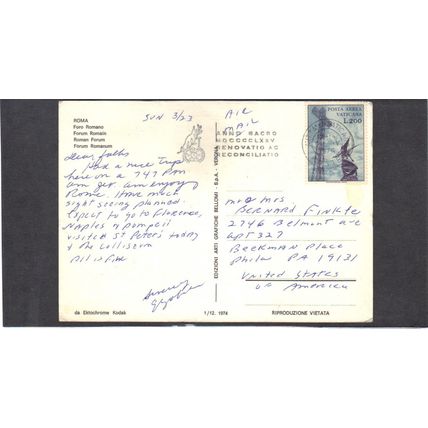 ROMA
Foro Romano
Forum Romain
Roman Forum
Forum Romanum
SUN 3/23
Dear folks
Had a nice trip
here on a 747 Pan
am jet. am enjoying
Rome. Have much
sight seeing planned.
Expect to go to Florence,
Naples & Pompeii
visited St Peters today
& the Colliseum
All is fine
Sincerely
da Ektachrome Kodak
EDIZIONI ARTI GRAFICHE BELLOMI - S.p.A. - VERONA
1/12. 1974
AIR
MAIL
ANNO SACRO
MCMLXXV
RENOVATIO AC
RECONCILIATIO
POSTA AEREA
VATICANA
L.200
mr & mrs
BERNARD FINKLE
2746 Belmont ave
apt 327
BEEKMAN Place
Phila PA 19131
United States
of America
RIPRODUZIONE VIETATA